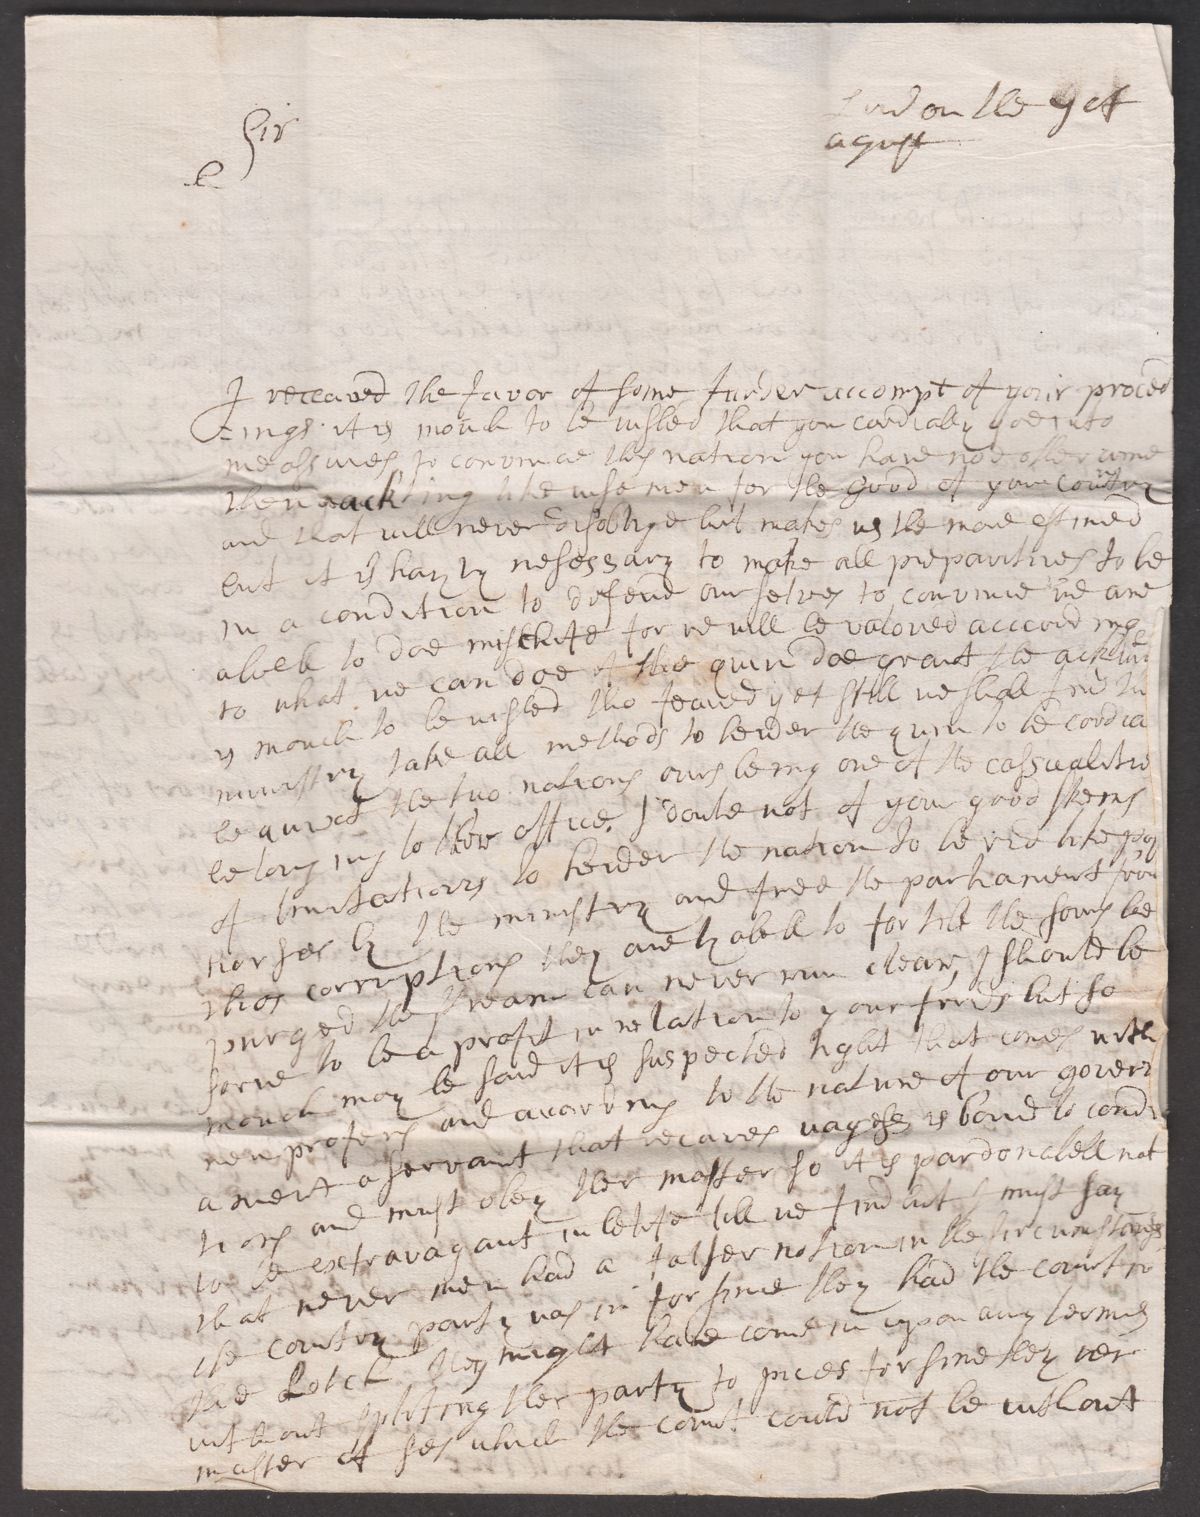 London the 9 of
agust
Sir
I receaved the favor of some furder accompt of your proced
=ings it is mouch to be wished that you cordialy goe into
measures to convince this nation you have noe other ame
then acking like wise men for the good of your country
and that will never disoblige but makes us the more estimed
but it is hayly nesessary to make all preparitnes to be
in a condition to defend our selves to convince we are
abell to doe mischife for we will be valowed accord ing
to what we can doe if the quin doe grant the ack
is mouch to be wished tho feared yet still we shall find th
ministry take all methods to hender the quin to be cordia
be twixt the two nations ours being one of the cassualitie
be long ing to ther office. I doute not of your good skems
of limitations to hender the nation to be rid like poo
horses by the ministry and free the parliament from
thos corruptions they are lyabell to for till the
purged the stream can never run clear, I should be
sorie to be a profit in relation to your frends but so
mouch may be said it is suspected light that comes with
new profers and according to the nature of our govern
a ment a servant that receaves wages is bond to condi
tions and must obey ther master so it is pardonabell not
to be extravagant in belife till we find but I must say
that never men had a falser notion in the sircumstances
the countrey party was in for sinc they had the court in
the they might have come in upon any termes
without spliting ther party to pices for sinc they wer
master of ses which the court could not be without